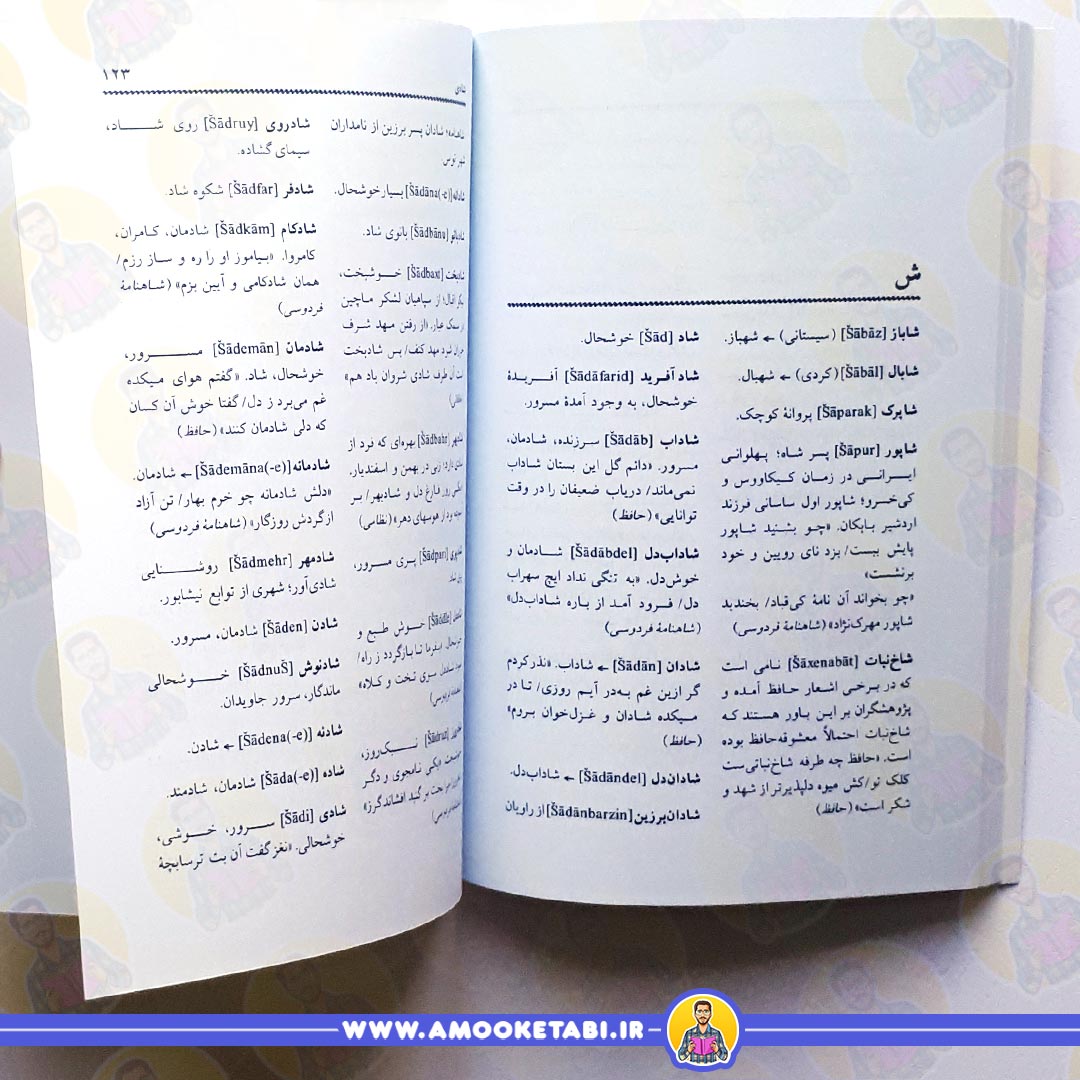 ش
شاباز [Šābāz] (سیستانی) ← شهباز.
شابال [Šābāl] (کردی) ← شهبال.
شاپرک [Šāparak] پروانهٔ کوچک.
شاپور [Šāpur] پسر شاه؛ پهلوانی
ایرانی در زمان کیکاووس و
کی‌خسرو؛ شاپور اول ساسانی فرزند
اردشیر بابکان. «چو بشنید شاپور
پایش ببست/ بزد نای رویین و خود
برنشست»
«چو بخواند آن نامهٔ کی‌قباد/ بخندید
شاپور مهرک‌نژاد» (شاهنامهٔ فردوسی)
شاخ‌نبات [Šāxenabāt] نامی است
که در برخی اشعار حافظ آمده و
پژوهشگران بر این باور هستند که
شاخ‌نبات احتمالاً معشوقه‌حافظ بوده
است. «حافظ چه طرفه شاخ‌نباتی‌ست
کلک تو/کش میوه دلپذیرتر از شهد و
شکر است» (حافظ)
شاد [Šād] خوشحال.
شاد آفرید [Šādāfarid] آفریدهٔ
خوشحال، به وجود آمدهٔ مسرور.
شاداب [Šādāb] سرزنده، شادمان،
مسرور. «دائم گل این بستان شاداب
نمی‌ماند/ دریاب ضعیفان را در وقت
توانایی» (حافظ)
شاداب‌دل [Šādābdel] شادمان و
خوش‌دل. «به تنگی نداد ایچ سهراب
دل/ فرود آمد از باره شاداب‌دل»
(شاهنامهٔ فردوسی)
شادان [Šādān] ← شاداب. «نذر کردم
گر ازین غم به‌در آیم روزی/ تا در
میکده شادان و غزل‌خوان بروم»
(حافظ)
شادان‌دل [Šādāndel] ← شاداب‌دل.
شادان‌برزین [Šādānbarzin] از راویان
شادی
۱۲۳
شاهنامه؛ شادان پسر برزین از نامداران
شهر توس
شادانه [Šādāna(-e)] بسیار خوشحال.
شادبانو [Šādbānu] بانوی شاد.
شادبخت [Šādbaxt] خوشبخت،
اقبال؛ از سپاهیان لشکر ماچین
سمک عیار. «از رفتن مهد شرف
مهد کنف/ بس شادبخت
آن طرف شادی شروان باد هم»
شادبهر [Šādbahr] بهره‌ای که فرد از
شادی دارد؛ زنی در بهمن و اسفندیار.
روز فارغ دل و شادبهر/ بر
بود از هوسهای دهر» (نظامی)
[Šādpari] پری مسرور،
خوش طبع و
تا بازگردد ز راه/
سوی تخت و کلاه»
نیک‌روز،
نامجوی و دگر
بخت بر گنبد افشاند گرز»
شادروی [Šādruy] روی شاد،
سیمای گشاده.
شادفر [Šādfar] شکوه شاد.
شادکام [Šādkām] شادمان، کامران،
کامروا. «بیاموز او را ره و ساز رزم/
همان شادکامی و آیین بزم» (شاهنامهٔ
فردوسی)
شادمان [Šādemān] مسرور،
خوشحال، شاد. «گفتم هوای میکده
غم می‌برد ز دل/ گفتا خوش آن کسان
که دلی شادمان کنند» (حافظ)
شادمانه [Šādemāna(-e)] ← شادمان.
«دلش شادمانه چو خرم بهار/ تن آزاد
ازگردش روزگار» (شاهنامهٔ فردوسی)
شادمهر [Šādmehr] روشنایی
شادی‌آور؛ شهری از توابع نیشابور.
شادن [Šāden] شادمان، مسرور.
شادنوش [ŠādnuŠ] خوشحالی
ماندگار، سرور جاویدان.
شادنه [Šādena(-e)] ← شادن.
شاده [Šāda(-e)] شادمان، شادمند.
شادی [Šādi] سرور، خوشی،
خوشحالی. «نغز گفت آن بت ترسابچهٔ
WWW.AMOOKETABI.IR